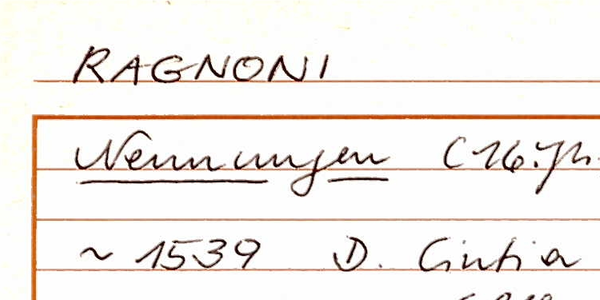 RAGNONI
Nennungen (16. Jh.
~ 1539 D. Cintia